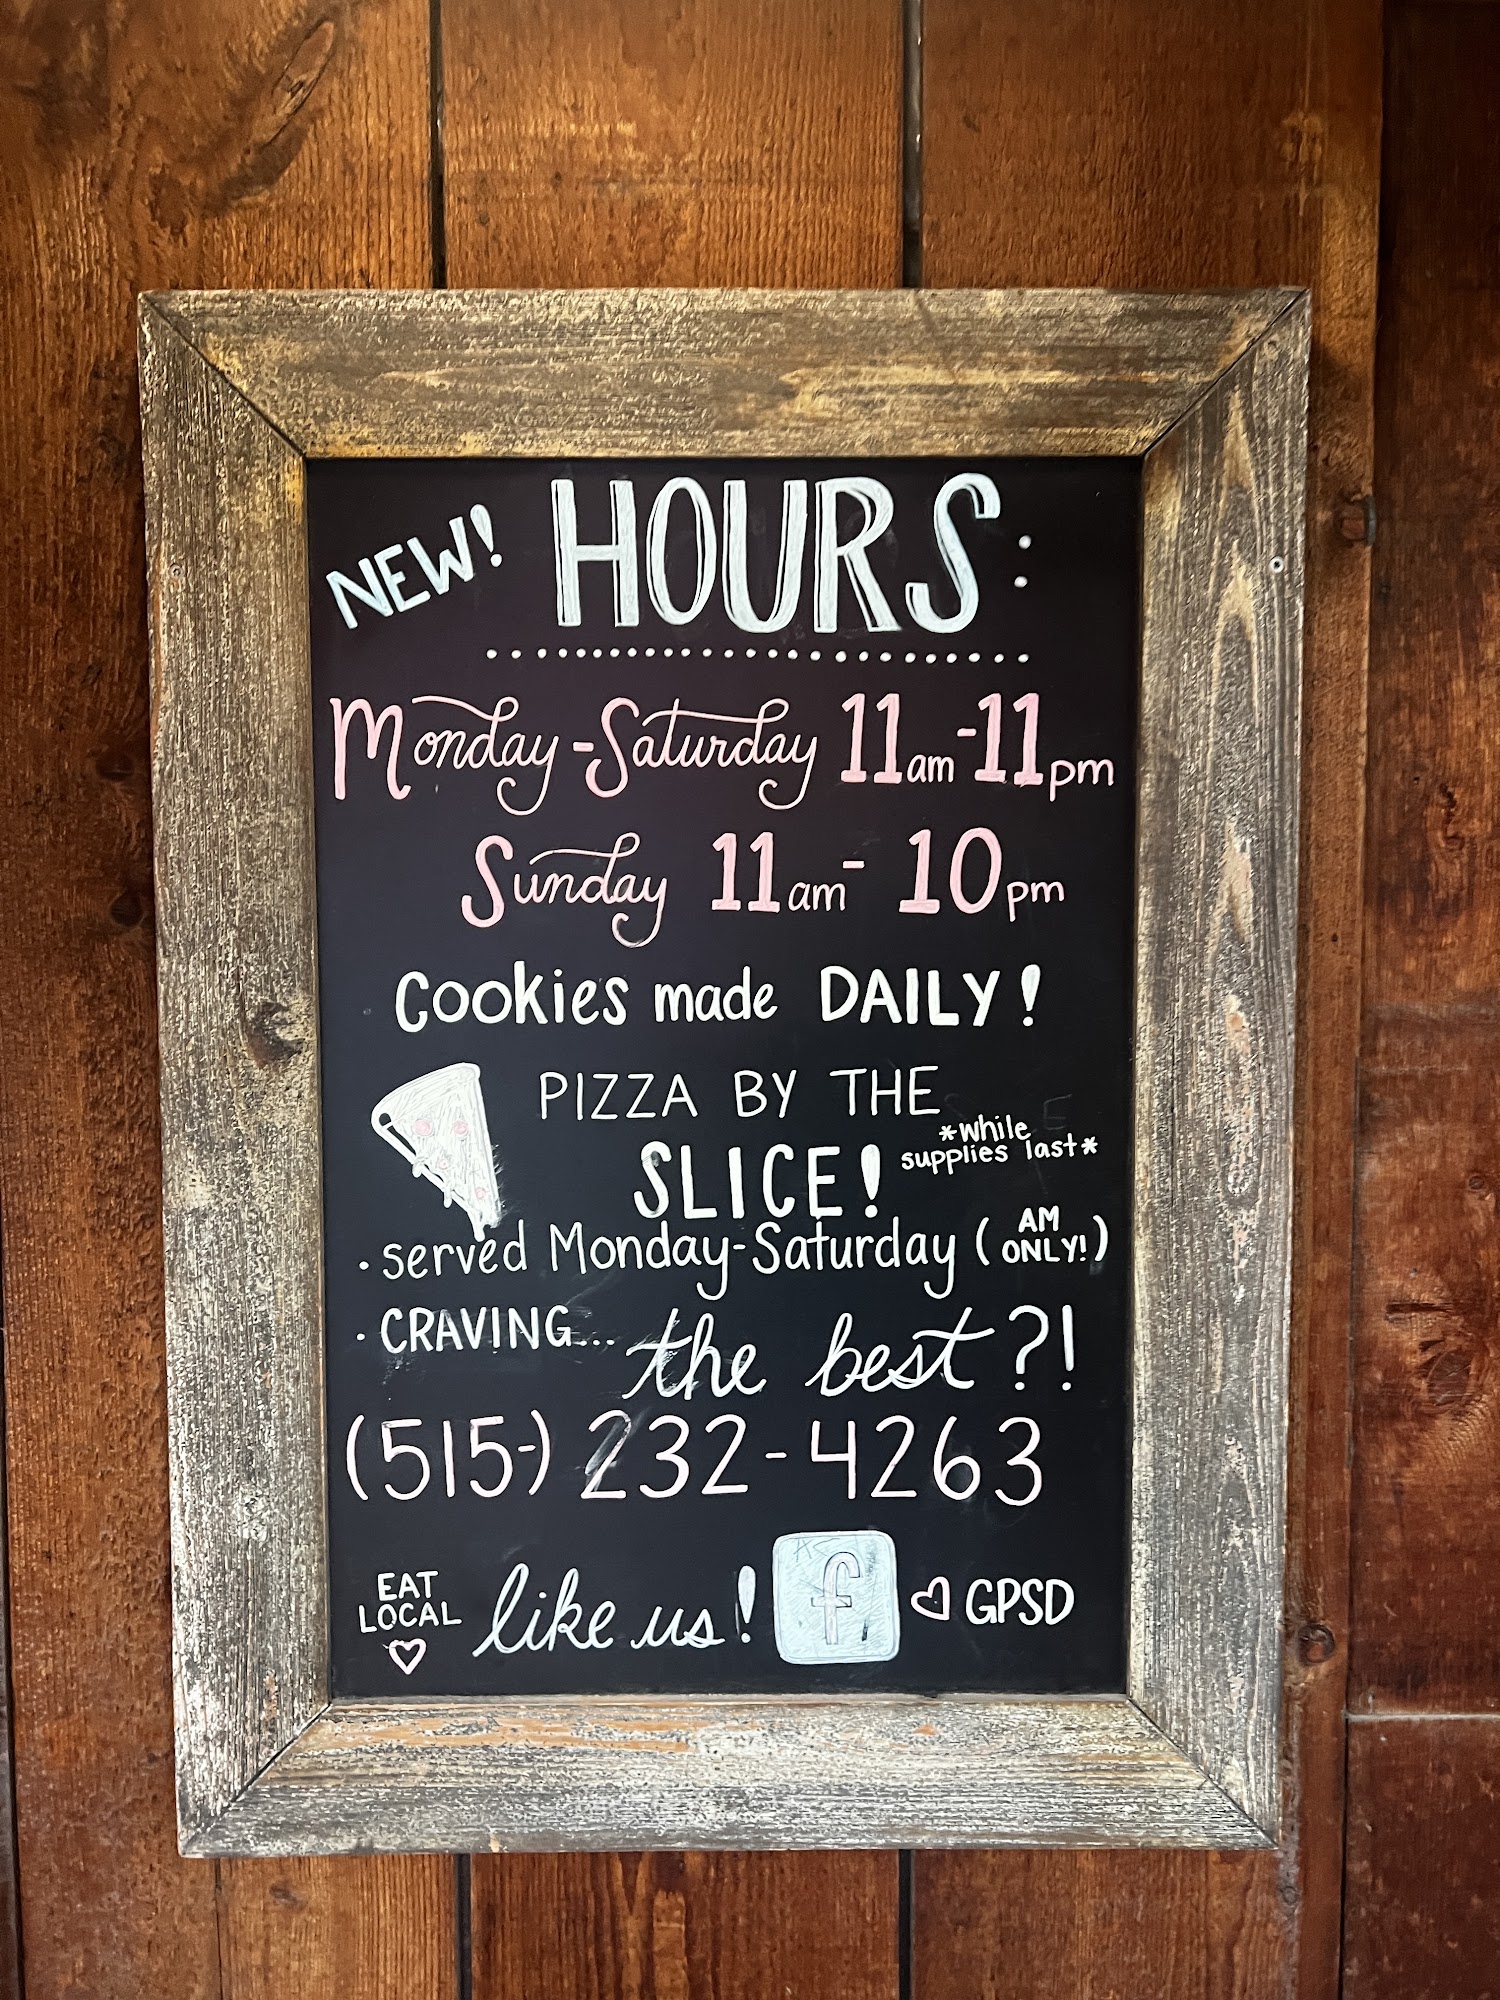 NEW! HOURS:
Monday-Saturday 11am-11pm
Sunday 11am- 10pm
Cookies made DAILY!
PIZZA BY THE
SLICE! *while
supplies last*
• served Monday-Saturday (AM
ONLY!)
• CRAVING... the best?!
(515-) 232-4263
EAT
LOCAL
like us! f ♡ GPSD